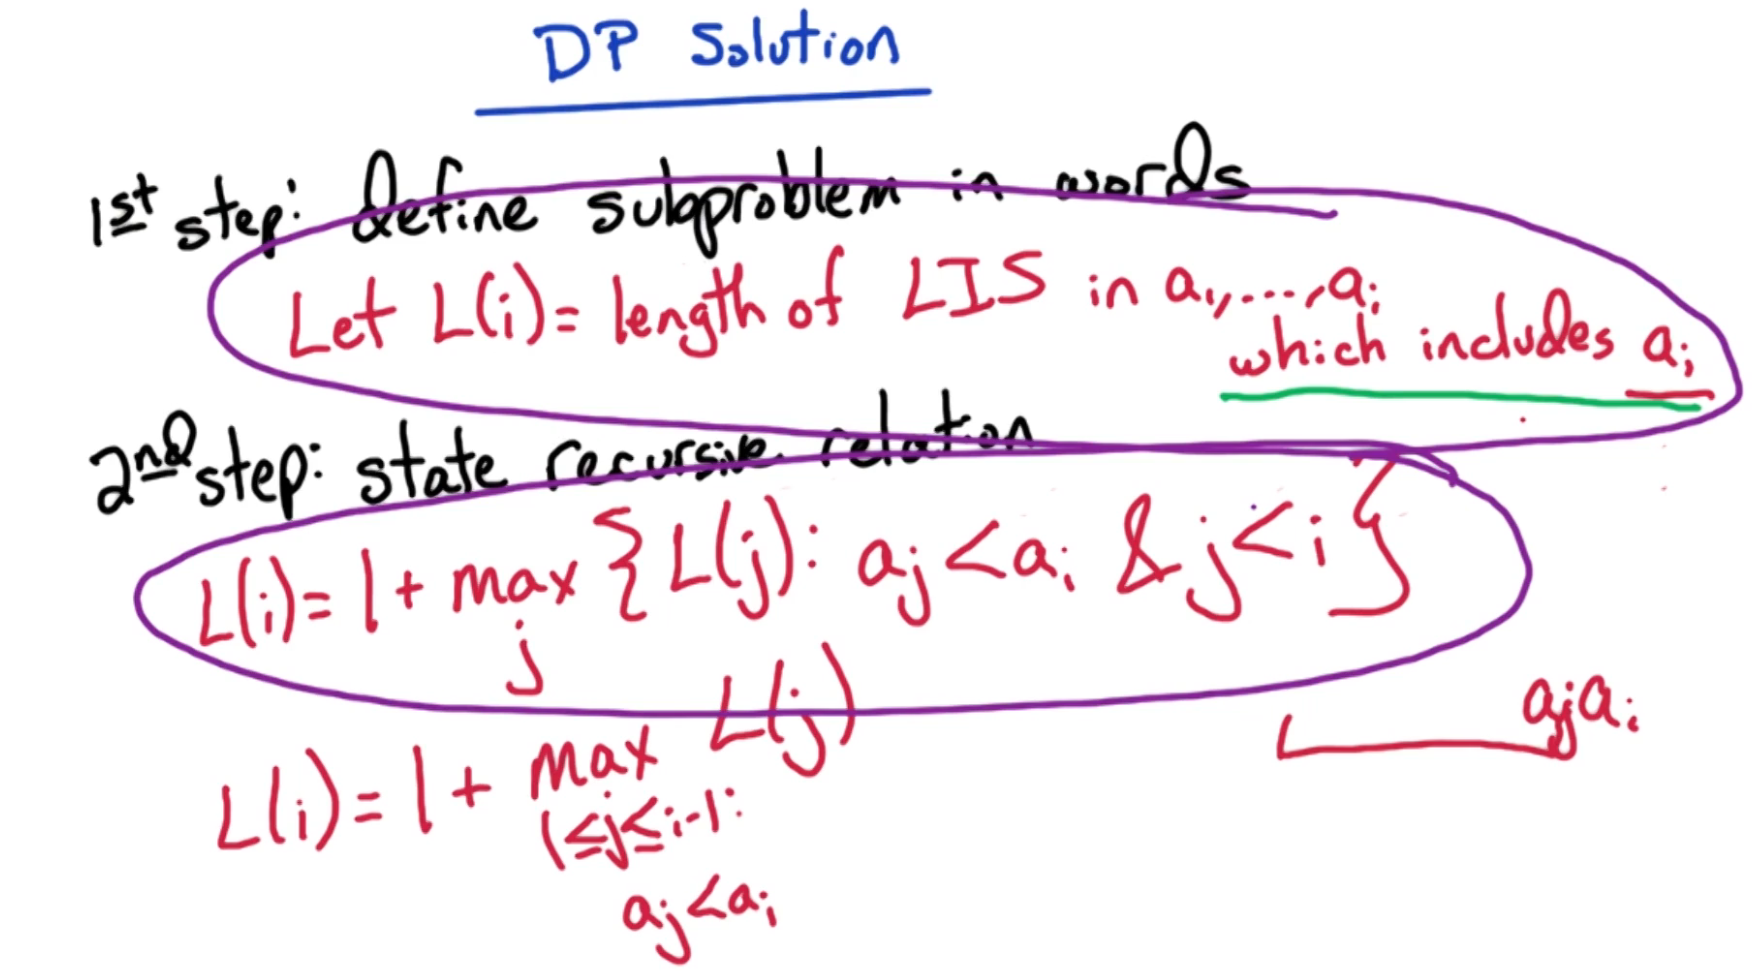 DP Solution
1st step: define subproblem in words
Let L(i) = length of LIS in a₁, ..., aᵢ
which includes aᵢ
2nd step: state recursive relation
L(i) = 1 + max {L(j): aⱼ < aᵢ & j < i}
j
aⱼaᵢ
L(i) = 1 + max L(j)
1≤j≤i-1:
aⱼ < aᵢ